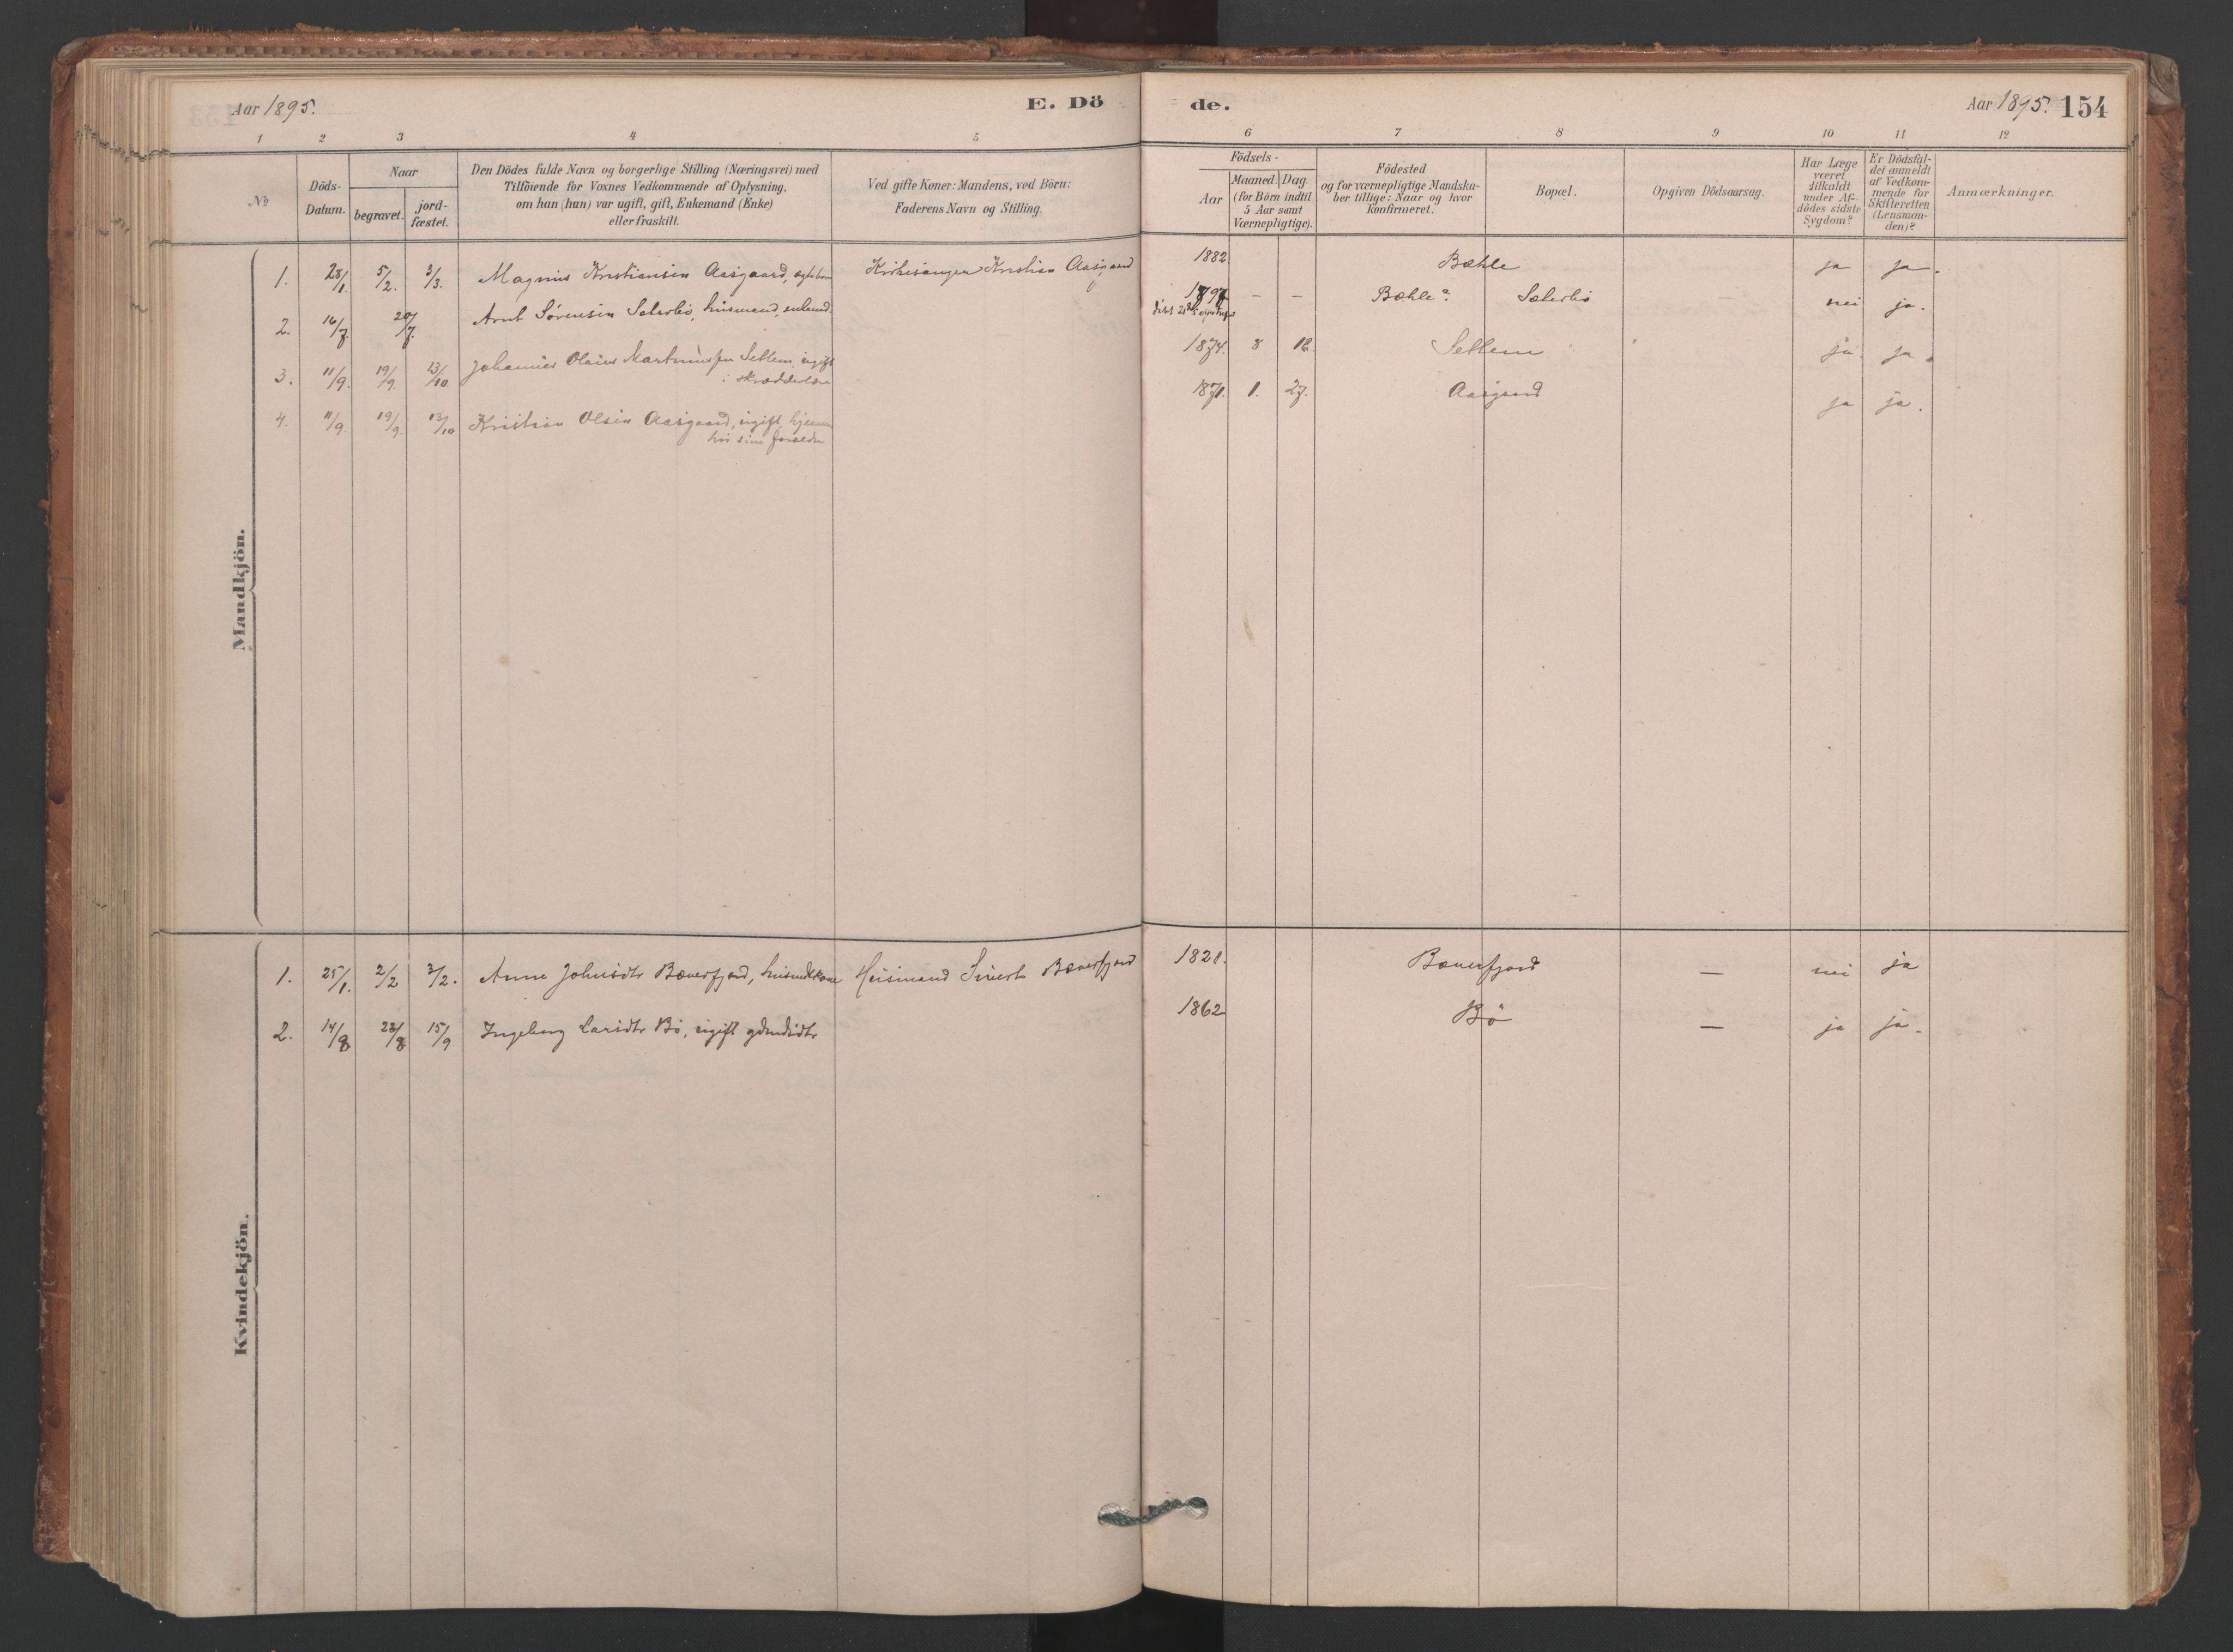 Aar 1895.
E. Dö
de.
Aar 1895.
154
1 2 3 4 5 6 7 8 9 10 11 12
No
Döds-
Datum.
Naar
begravet.
jord-
fæstet.
Den Dödes fulde Navn og borgerlige Stilling (Næringsvei) med
Tilföiende for Voxnes Vedkommende af Oplysning,
om han (hun) var ugift, gift, Enkemand (Enke)
eller fraskilt.
Ved gifte Koner: Mandens, ved Börn:
Faderens Navn og Stilling.
Födsels-
Aar
Maaned. Dag.
(for Börn indtil
5 Aar samt
Værnepligtige).
Födested
og for værnepligtige Mandska-
ber tillige: Naar og hvor
Konfirmeret.
Bopæl.
Opgiven Dödsaarsag.
Har Læge
været
tilkaldt
under Af-
dödes sidste
Sygdom?
Er Dödsfal-
det anmeldt
af Vedkom-
mende for
Skifteretten
(Lensman-
den)?
Anmærkninger.
Mandkjön.
1. 28/1. 5/2. 3/3. Magnus Kristiansen Aasgaard, Kirkesanger Kristian Aasgaard 1882 Bæhle ja ja.
2. 16/7. 20/7. Arnt Sørensen Sæterbø, husmand, enkemd. — — Bæhle ª. Sæterbø — nei ja.
3. 11/9. 19/9. 13/10 Johannes Olaus Martinussen Settem, ugift 1874. 8 12. Settem ja ja.
i skrædderlære
4. 11/9 19/9. 13/10 Kristian Olsen Aasgaard, ugift, hjemme 1871. 1. 27. Aasgaard ja ja.
hos sine forældre
Kvindekjön.
1. 25/1. 2/2 3/2. Anne Johnsdtr Bæverfjord, husmdskone Husmand Sivert Bæverfjord 1821. Bæverfjord — nei ja
2. 14/8 23/8 15/9 Ingeborg Larsdtr Bø, ugift gdmdsdtr 1862 Bø — ja ja.